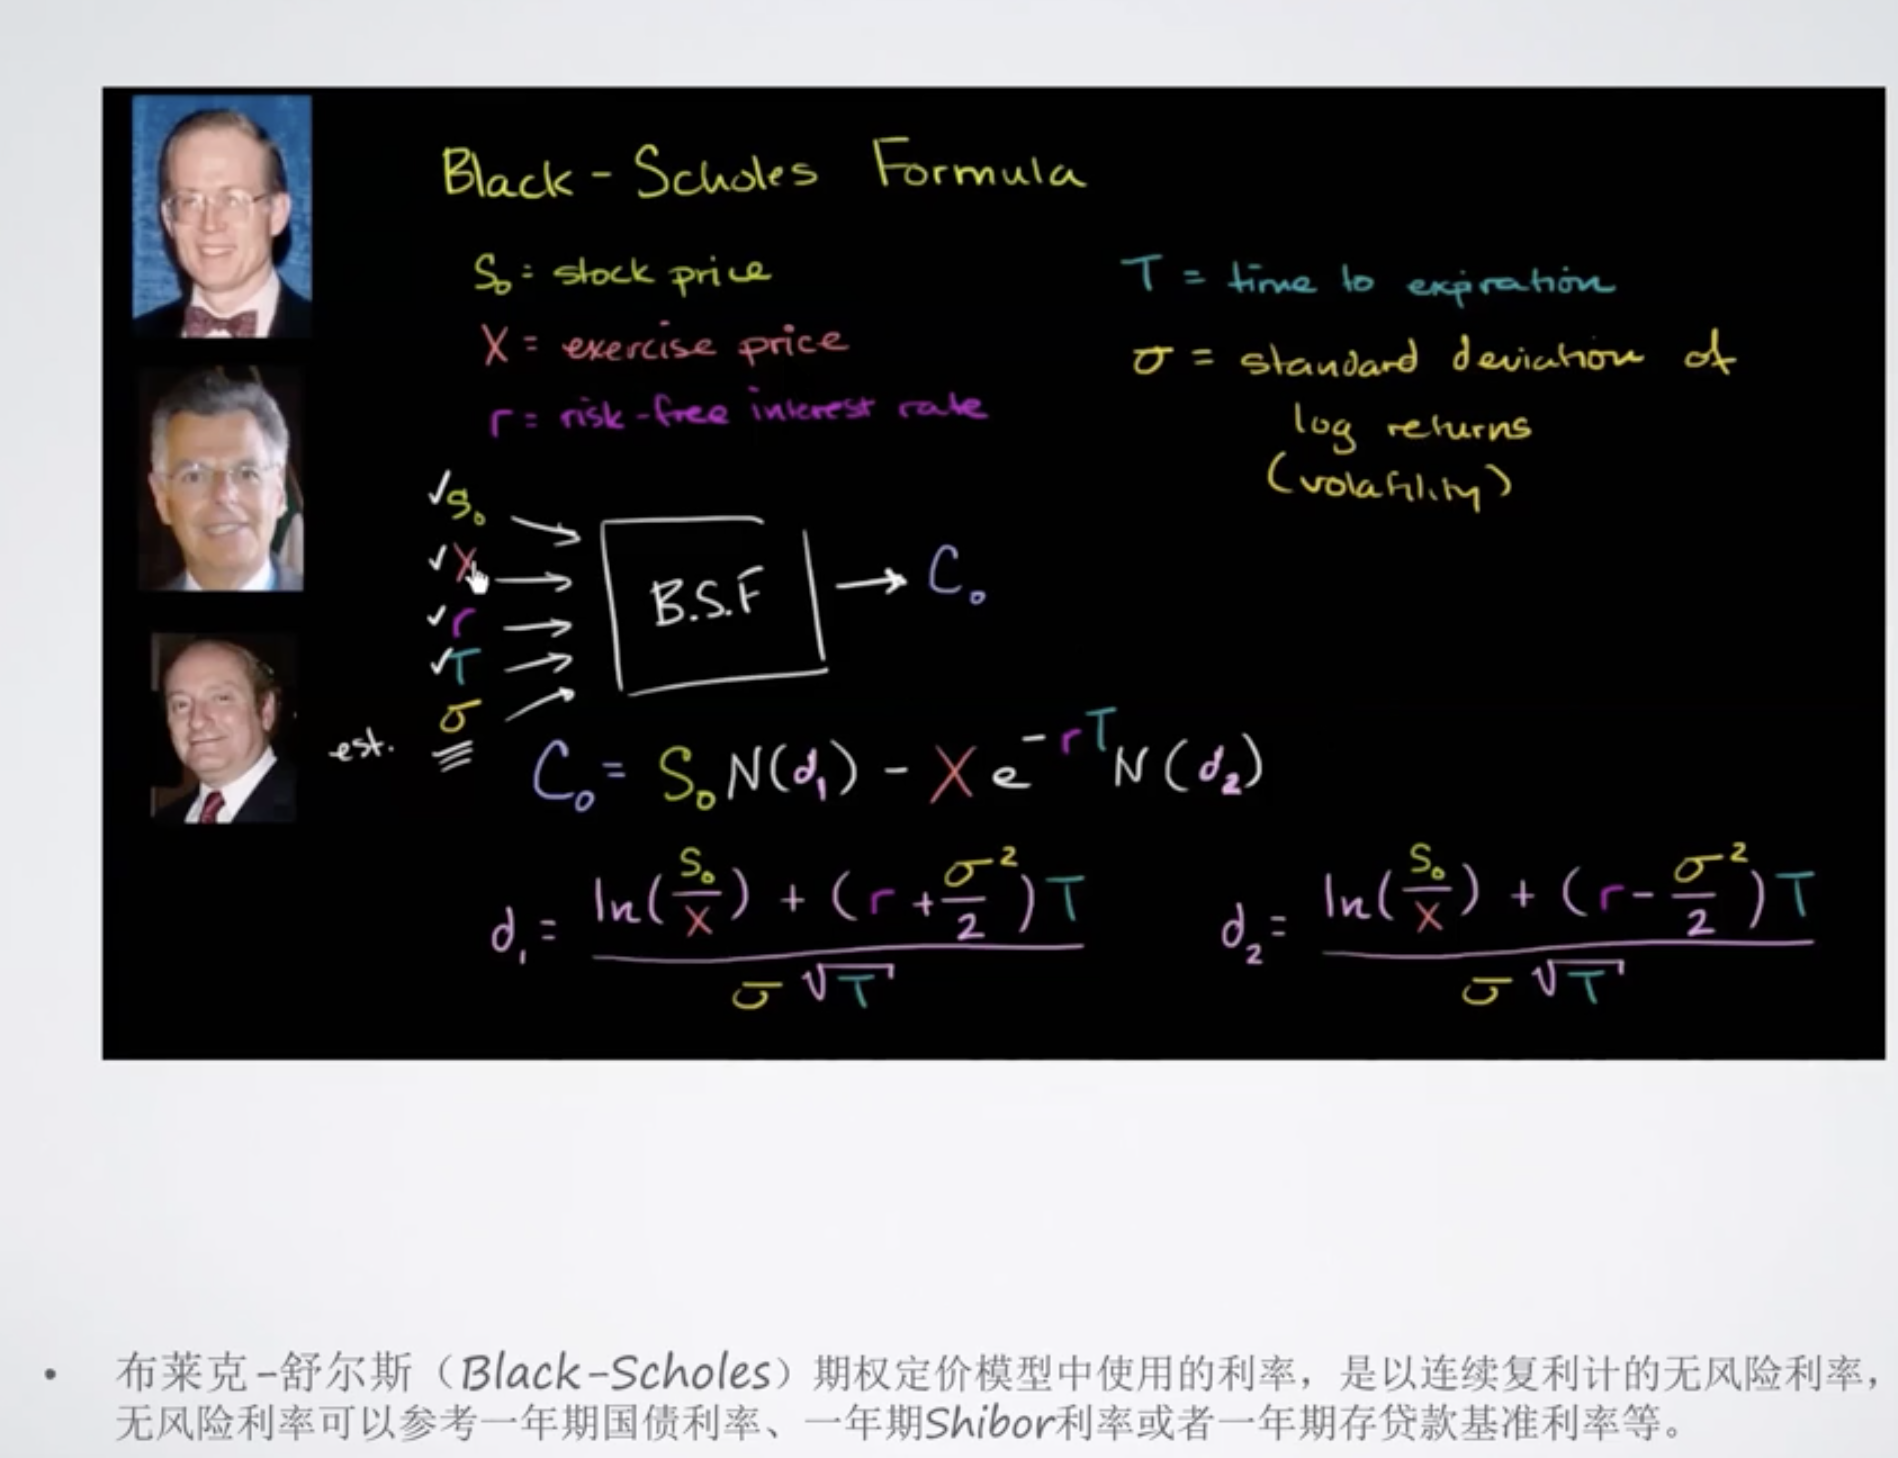 Black-Scholes Formula
S₀ = stock price
X = exercise price
r = risk-free interest rate
T = time to expiration
σ = standard deviation of
log returns
(volatility)
✓S₀
✓X
✓r
✓T
est. σ
B.S.F
C₀
C₀ = S₀N(d₁) - Xe^(-rT)N(d₂)
d₁ = (ln(S₀/X) + (r + σ²/2)T) / (σ√T)
d₂ = (ln(S₀/X) + (r - σ²/2)T) / (σ√T)
• 布莱克-舒尔斯（Black-Scholes）期权定价模型中使用的利率，是以连续复利计的无风险利率，
无风险利率可以参考一年期国债利率、一年期Shibor利率或者一年期存贷款基准利率等。